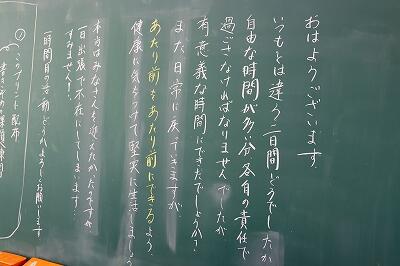 おはようございます。
いつもとは違う二日間どうでしたか
自由な時間が多い分各自の責任で
過ごさなければなりませんでしたが
有意義な時間にできたでしょうか?
また日常に戻っていきますが
あたり前をあたり前にできるよう
健康に気をつけて堅実に生活しましょう
本当はみなさんを迎えたかったのですが
一日出張で不在にしてしまいます…
すみません!
一時間目の活動どうかよろしくお願いします
① プリント配布